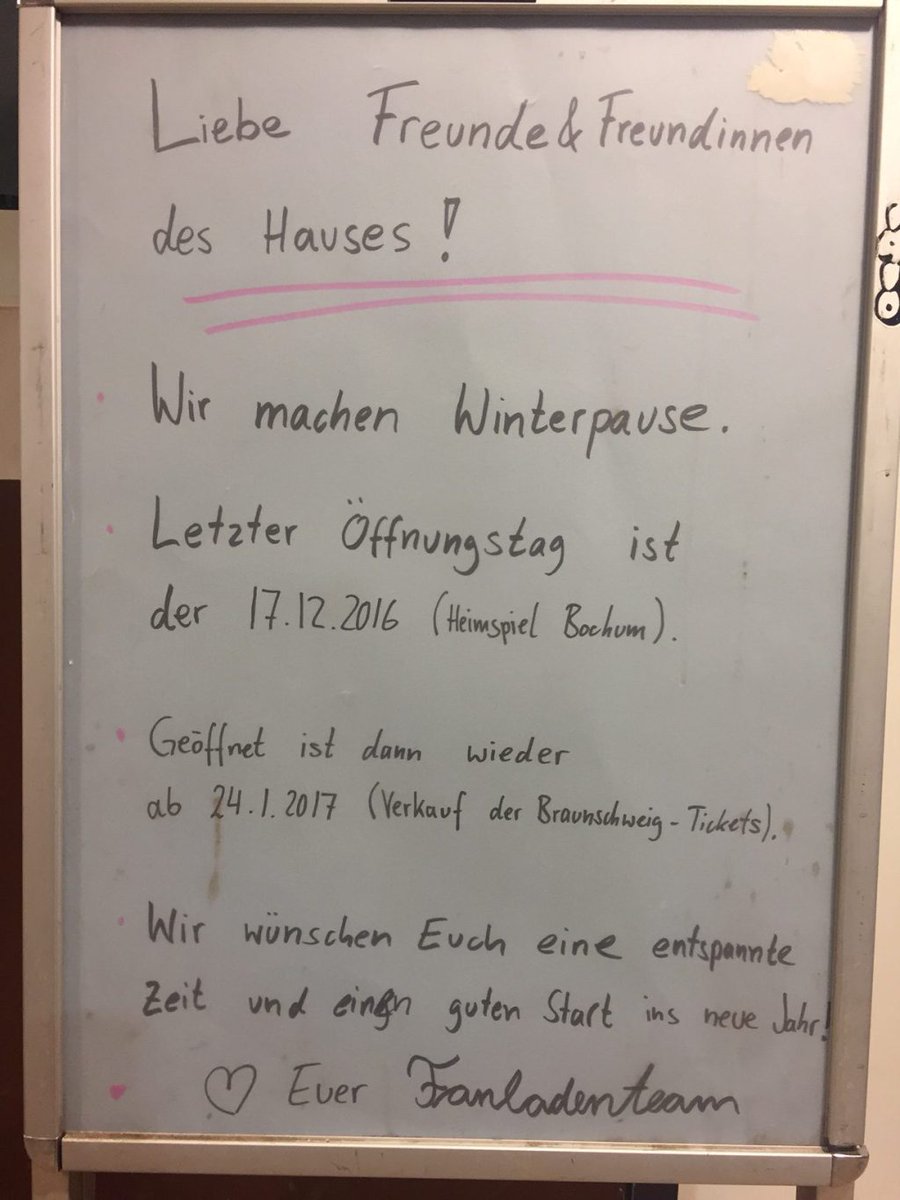 Liebe Freunde & Freundinnen
des Hauses!
Wir machen Winterpause.
Letzter Öffnungstag ist
der 17.12.2016 (Heimspiel Bochum).
Geöffnet ist dann wieder
ab 24.1.2017 (Verkauf der Braunschweig-Tickets).
Wir wünschen Euch eine entspannte
Zeit und einen guten Start ins neue Jahr!
♡ Euer Fanladenteam